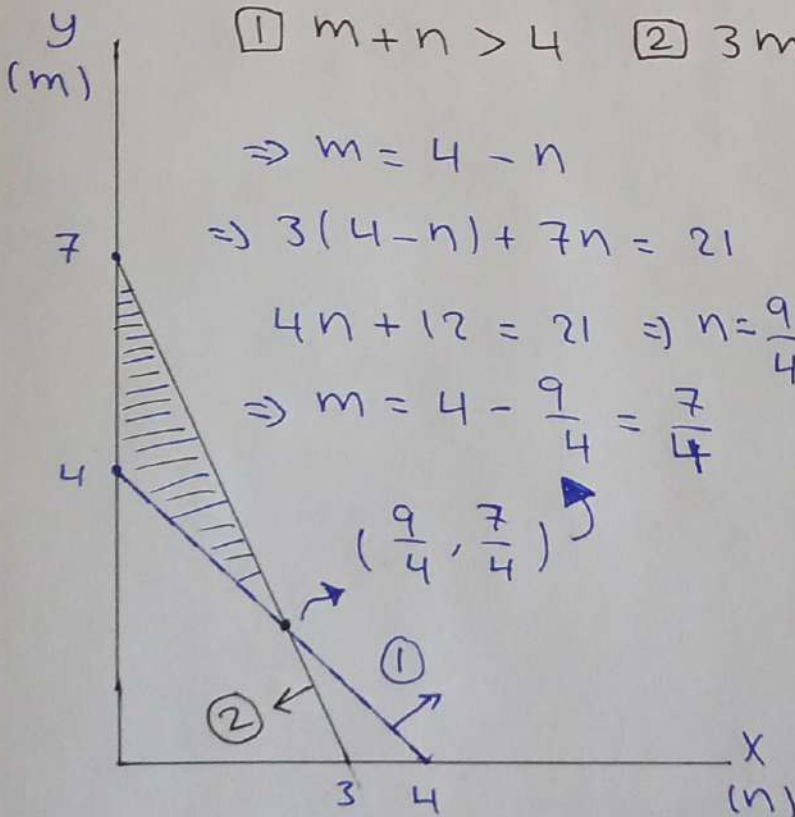 y
(m)
1 m + n > 4 2 3m
⇒ m = 4 - n
⇒ 3(4-n) + 7n = 21
7
4n + 12 = 21 ⇒ n = 9/4
⇒ m = 4 - 9/4 = 7/4
4
(9/4, 7/4)
1
2
3 4
x
(n)